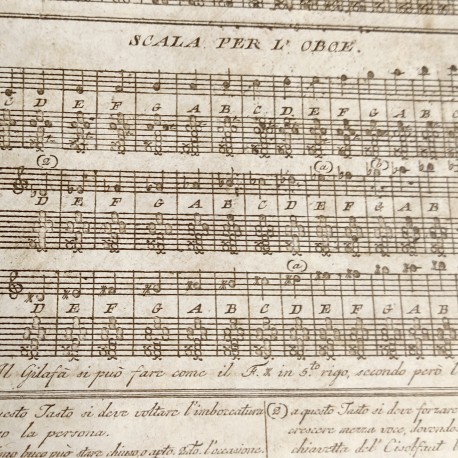 SCALA PER L' OBOE.
C D E F G A B C D E F G A B C
(2) (a) (b)
D E F G A B C D E F G A B
(a)
D E F G A B C D E F G A B
Il Gilafà si può fare come il F.x in 5.to rigo, secondo però l
questo Tasto si deve voltare l'imboccatura
so la persona.
imo buco può stare chiuso, o apto. 2do. l'occasione.
(2) a questo Tasto si deve forzare
crescere mezza voce, dovendo
chiavetta del Cisolfaut